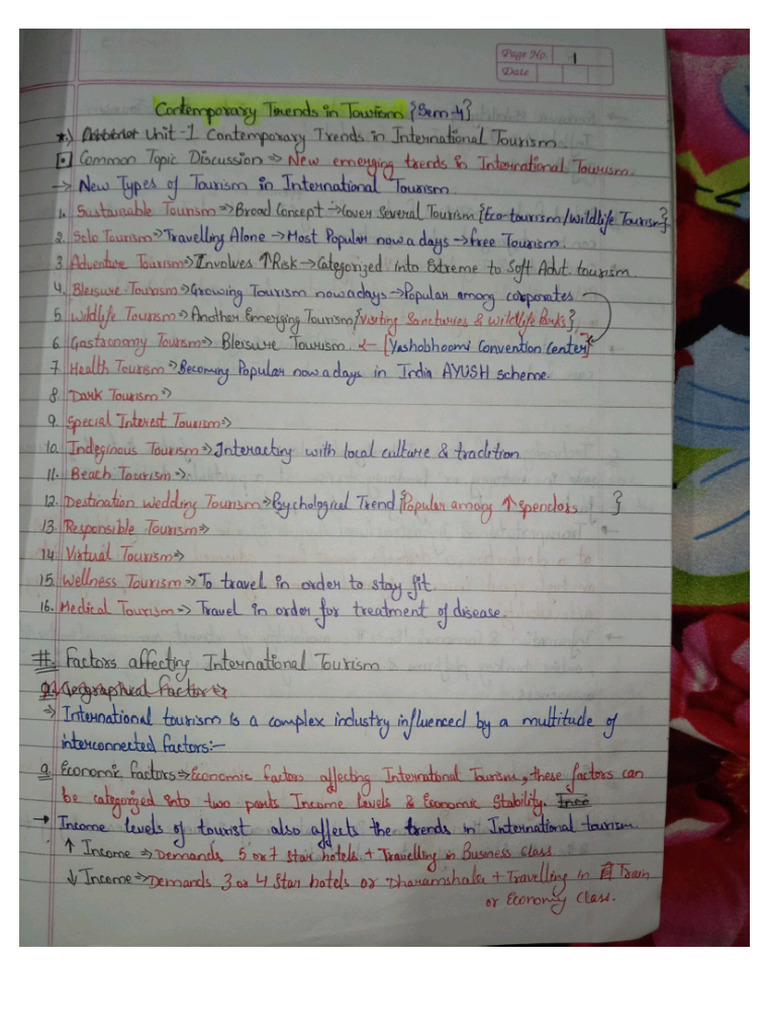 Page No. 1
Date
Contemporary Trends in Tourism {Sem-4}
*) Unit-1 Contemporary Trends in International Tourism.
Common Topic Discussion ⇒ New emerging trends in International Tourism.
→ New Types of Tourism in International Tourism.
1. Sustaneable Tourism ⇒ Broad Concept → Cover Several Tourism {Eco-tourism/Wildlife Tourism}
2. Solo Tourism ⇒ Travelling Alone → Most Popular now a days → free Tourism.
3. Adventure Tourism ⇒ Involves ↑ Risk → Categorized into Extreme to Soft Advt. tourism.
4. Bleisure Tourism ⇒ Growing Tourism nowadays → Popular among corporates
5. Wildlife Tourism ⇒ Another Emerging Tourism {Visiting Sancturies & Wildlife Parks}
6. Gastronomy Tourism ⇒ Bleisure Tourism [Yashobhoomi Convention Center]
7. Health Tourism ⇒ Becoming Popular now a days in India AYUSH scheme.
8. Dark Tourism ⇒
9. Special Interest Tourism ⇒
10. Indeginous Tourism ⇒ Interacting with local culture & tradition
11. Beach Tourism ⇒
12. Destination wedding Tourism ⇒ Psychological Trend {Popular among ↑ spendors. }
13. Responsible Tourism ⇒
14. Virtual Tourism ⇒
15. Wellness Tourism ⇒ To travel in order to stay fit.
16. Medical Tourism ⇒ Travel in order for treatment of disease.
#. Factors affecting International Tourism
Geographical Factors
⇒ International tourism is a complex industry influenced by a multitude of
interconnected factors:-
a. Economic factors ⇒ Economic factors affecting International Tourism, these factors can
be categorized into two parts Income Levels & Economic Stability.
→ Income levels of tourist also affects the trends in International tourism.
↑ Income ⇒ Demands 5 or 7 Star hotels + Travelling in Business class
↓ Income ⇒ Demands 3 or 4 Star hotels or Dharamshala + Travelling in Train
or Economy Class.